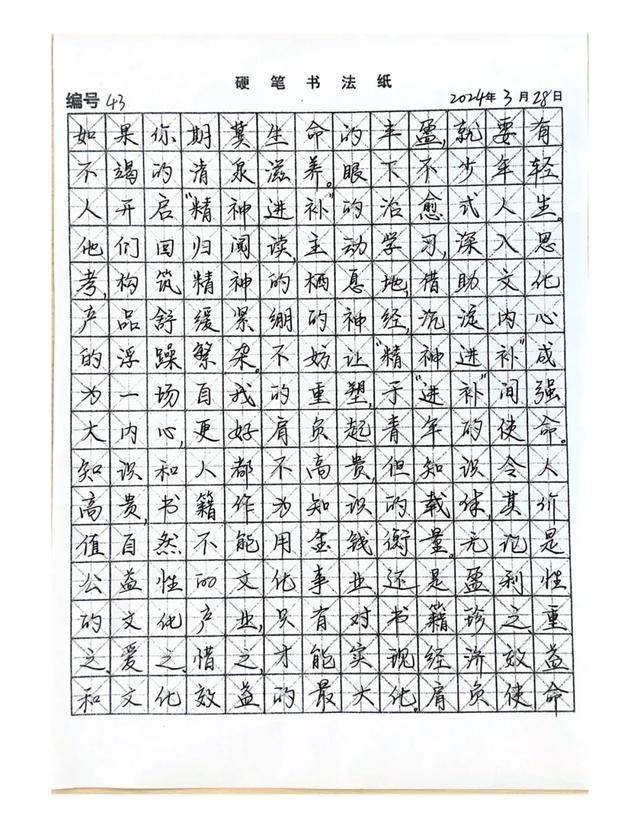 硬笔书法纸
编号 43 2024年3月28日
如果你期冀生命的丰盈,就要有
不竭的清泉滋养。眼下不少年轻
人开启“精神进补”的治愈式人生。
他们回归阅读,主动学习,深入思
考,构筑精神的栖息地,借助文化
产品舒缓紧绷的神经,沉淀内心
的浮躁繁杂。不妨让“精神进补”成
为一场自我的重塑,于“进补”间强
大内心,更好肩负起青年的使命。
知识和人都不高贵,但知识令人
高贵,书籍作为知识的载体,其价
值自然不能用金钱衡量。无论是
公益性的文化事业,还是盈利性
的文化产业,只有对书籍珍之、重
之、爱之、惜之,才能实现经济效益
和文化效益的最大化。肩负使命